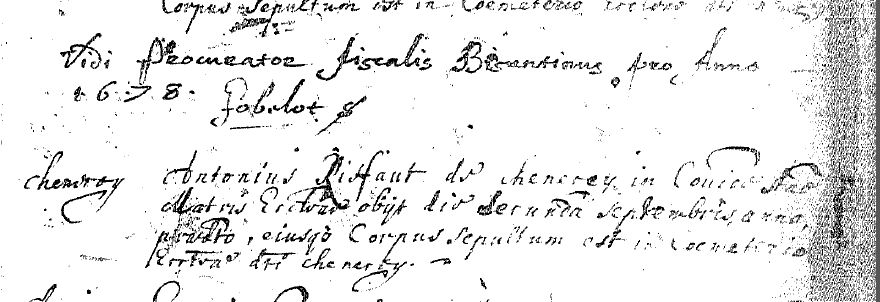 Corpus sepultum est in Coemeterio
Vidi Procurator fiscalis Bisuntinus pro Anno
1678. Jobelot
chenerey Antonius Risfaut de chenerey in Co͞muniõe S͞tae
Matris Eccl͞iae obijt die secunda septembris anno
pr͞dto, eiusq͞ Corpus sepultum est in Coemeterio
Eccl͞iae d͞ti chenerey.